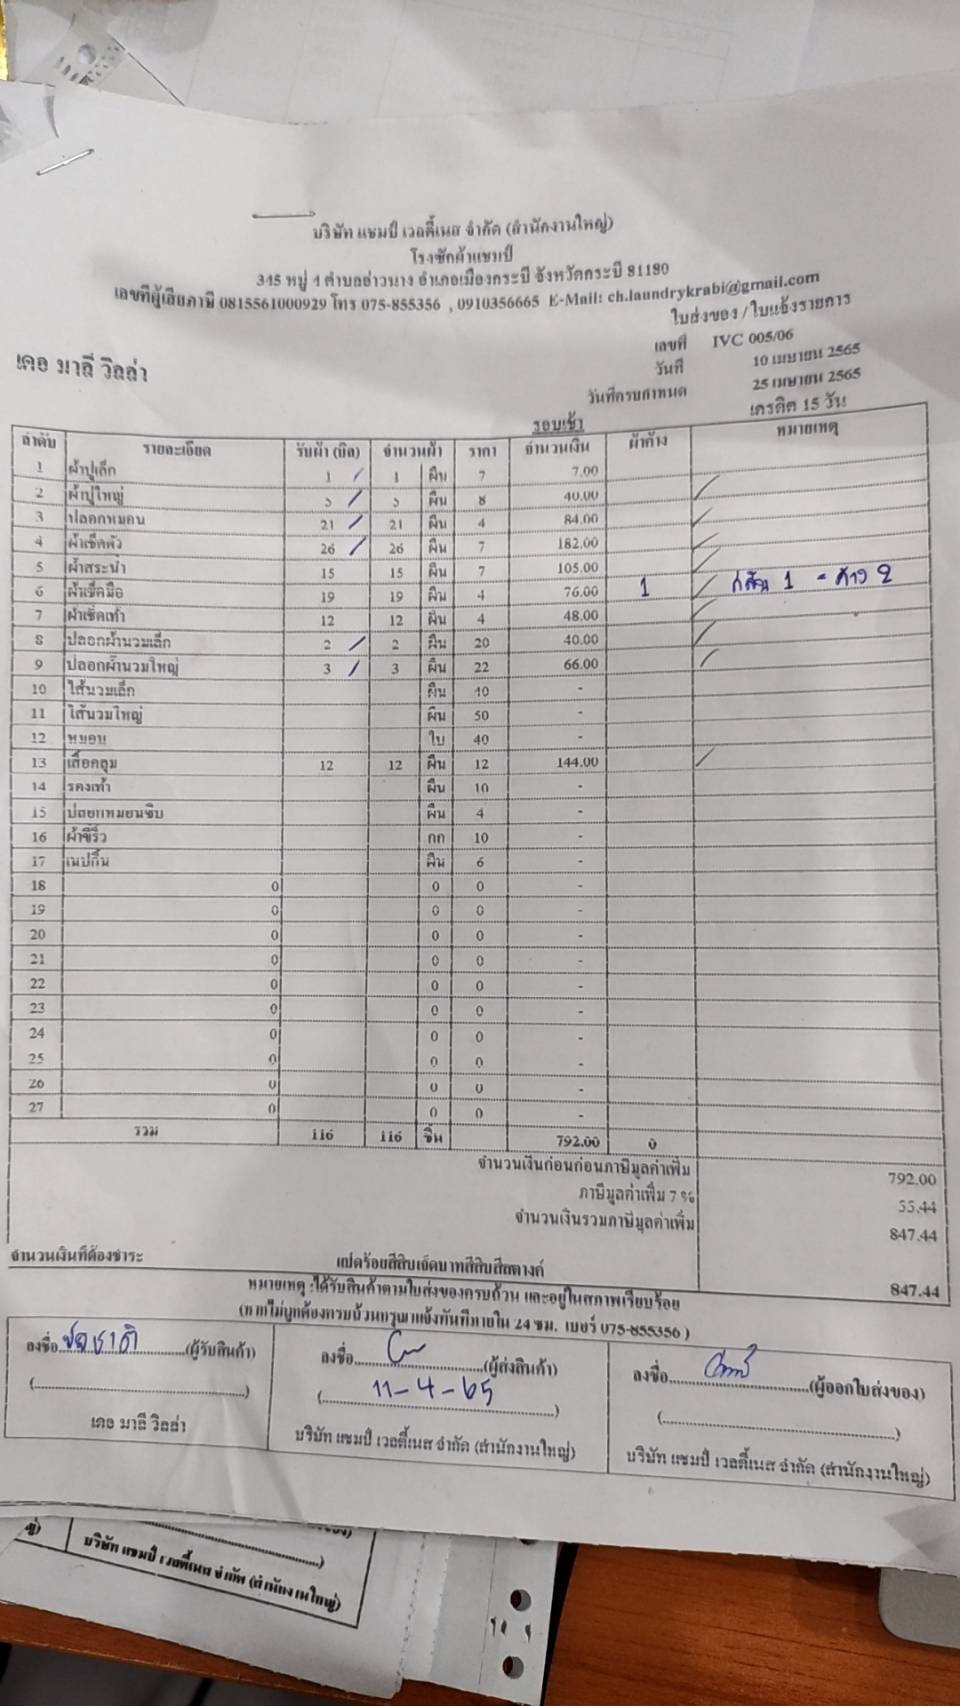 บริษัท แชมป์ เวลตี้เนส จำกัด (สำนักงานใหญ่)
โรงซักผ้าแชมป์
345 หมู่ 4 ตำบลอ่าวนาง อำเภอเมืองกระบี่ จังหวัดกระบี่ 81180
เลขที่ผู้เสียภาษี 0815561000929 โทร 075-855356 , 0910356665 E-Mail: ch.laundrykrabi@gmail.com
ใบส่งของ / ใบแจ้งรายการ
เลขที่ IVC 005/06
เดอ มาลี วิลล่า
วันที่ 10 เมษายน 2565
วันที่ครบกำหนด 25 เมษายน 2565
เครดิต 15 วัน
รอบเช้า
ลำดับ รายละเอียด รับผ้า (บิล) จำนวนผ้า ราคา จำนวนเงิน ผ้าค้าง หมายเหตุ
1 ผ้าปูเล็ก 1 1 ผืน 7 7.00
2 ผ้าปูใหญ่ 5 5 ผืน 8 40.00
3 ปลอกหมอน 21 21 ผืน 4 84.00
4 ผ้าเช็ดตัว 26 26 ผืน 7 182.00
5 ผ้าสระน้ำ 15 15 ผืน 7 105.00
6 ผ้าเช็ดมือ 19 19 ผืน 4 76.00 1 1 = ค้าง 2
7 ผ้าเช็ดเท้า 12 12 ผืน 4 48.00
8 ปลอกผ้านวมเล็ก 2 2 ผืน 20 40.00
9 ปลอกผ้านวมใหญ่ 3 3 ผืน 22 66.00
10 ไส้นวมเล็ก ผืน 40 -
11 ไส้นวมใหญ่ ผืน 50 -
12 หมอน ใบ 40 -
13 เสื้อคลุม 12 12 ผืน 12 144.00
14 รองเท้า ผืน 10 -
15 ปลอกหมอนซิบ ผืน 4 -
16 ผ้าขี้ริ้ว กก 10 -
17 เนปกิ้น ผืน 6 -
18 0 0 0 -
19 0 0 0 -
20 0 0 0 -
21 0 0 0 -
22 0 0 0 -
23 0 0 0 -
24 0 0 0 -
25 0 0 0 -
26 0 0 0 -
27 0 0 0 -
รวม 116 116 ชิ้น 792.00 0
จำนวนเงินก่อนก่อนภาษีมูลค่าเพิ่ม 792.00
ภาษีมูลค่าเพิ่ม 7 % 55.44
จำนวนเงินรวมภาษีมูลค่าเพิ่ม 847.44
จำนวนเงินที่ต้องชำระ แปดร้อยสี่สิบเจ็ดบาทสี่สิบสี่สตางค์ 847.44
หมายเหตุ :ได้รับสินค้าตามใบส่งของครบถ้วน และอยู่ในสภาพเรียบร้อย
(หากไม่ถูกต้องครบถ้วนกรุณาแจ้งทันทีภายใน 24 ชม. เบอร์ 075-855356 )
ลงชื่อ...............(ผู้รับสินค้า) ลงชื่อ...............(ผู้ส่งสินค้า) ลงชื่อ...............(ผู้ออกใบส่งของ)
(...............) (11-4-65) (...............)
เดอ มาลี วิลล่า บริษัท แชมป์ เวลตี้เนส จำกัด (สำนักงานใหญ่) บริษัท แชมป์ เวลตี้เนส จำกัด (สำนักงานใหญ่)
บริษัท แชมป์ เวลตี้เนส จำกัด (สำนักงานใหญ่)